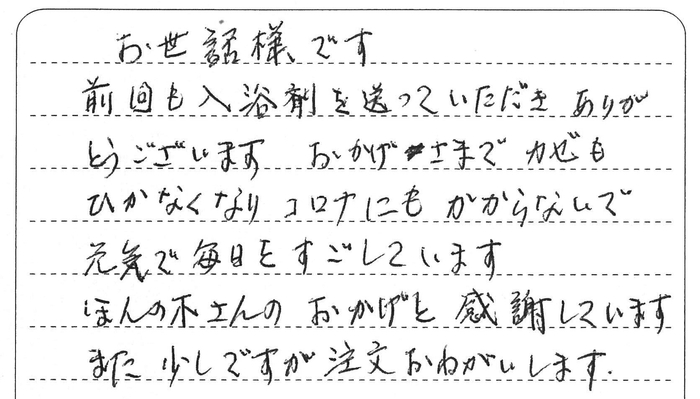 お世話様です
前回も入浴剤を送っていただきありが
とうございます おかげさまでカゼも
ひかなくなりコロナにもかからないで
元気で毎日をすごしています
ほんの木さんのおかげと感謝しています
また少しですが注文おねがいします.